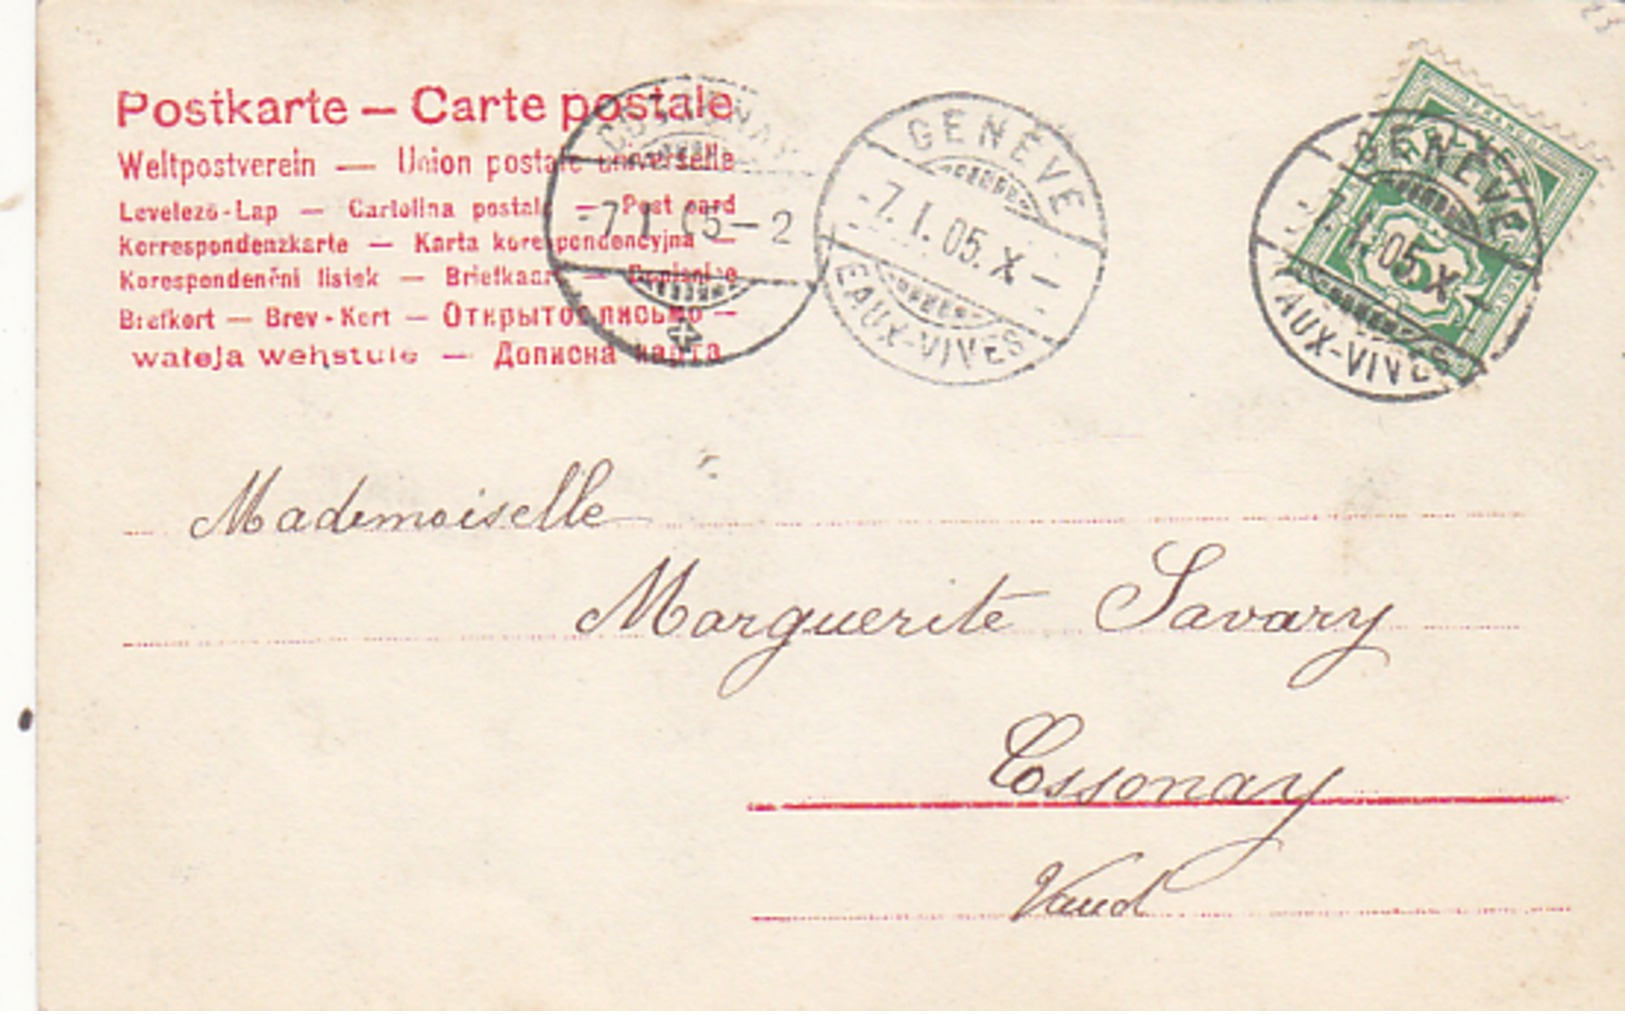 Postkarte — Carte postale
Weltpostverein — Union postale universelle
Levelező-Lap — Cartolina postale — Post card
Korrespondenzkarte — Karta korespondencyjna —
Korespondenční listek — Briefkaart — Dopisnice
Brefkort — Brev-Kort — Открытое письмо —
— Дописна карта
COSSONAY
-7. I. 05 – 2
GENÈVE
-7. I. 05. X –
EAUX-VIVES
GENÈVE
-7. I. 05. X –
EAUX-VIVES
5
Mademoiselle
Marguerite Savary
Cossonay
Vaud